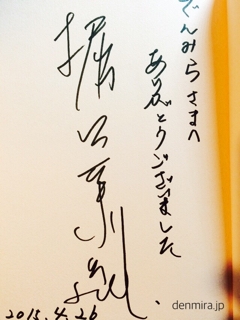 でんみらさまへ
ありがとうございました
2015.4.26
denmira.jp